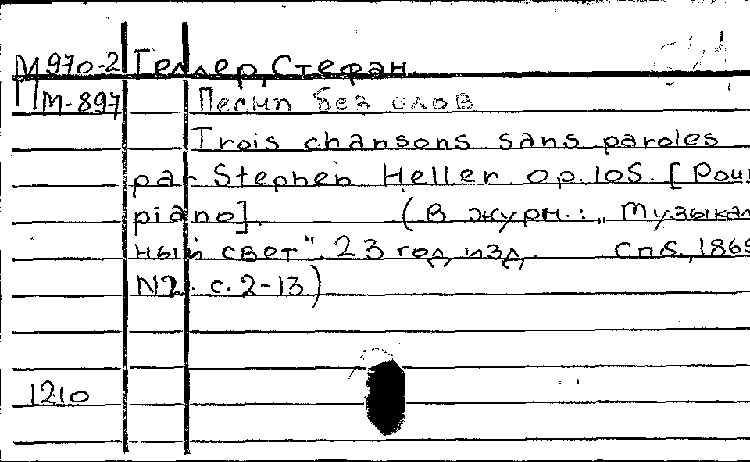 М970-2 Геллер, Стефан
М-897 Песни без слов
Trois chansons sans paroles
par Stephen Heller. op. 105. [Pour
piano]. (В журн.: „Музыкаль
ный свет". 23 год изд. Спб., 1869
N2. с. 2-13)
1210